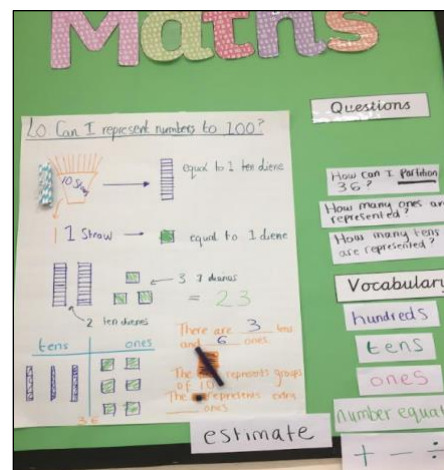 Maths
LO Can I represent numbers to 100?
10 straws
equal to 1 ten diene
1 Straw
equal to 1 diene
3 1 dienes
= 23
2 ten dienes
tens ones
36
There are 3 tens
and 6 ones.
The represents groups
of 10
The represents extra
ones
estimate
Questions
How can I partition
36?
How many ones are
represented?
How many tens
are represented?
Vocabulary
hundreds
tens
ones
number equal
+ - ÷